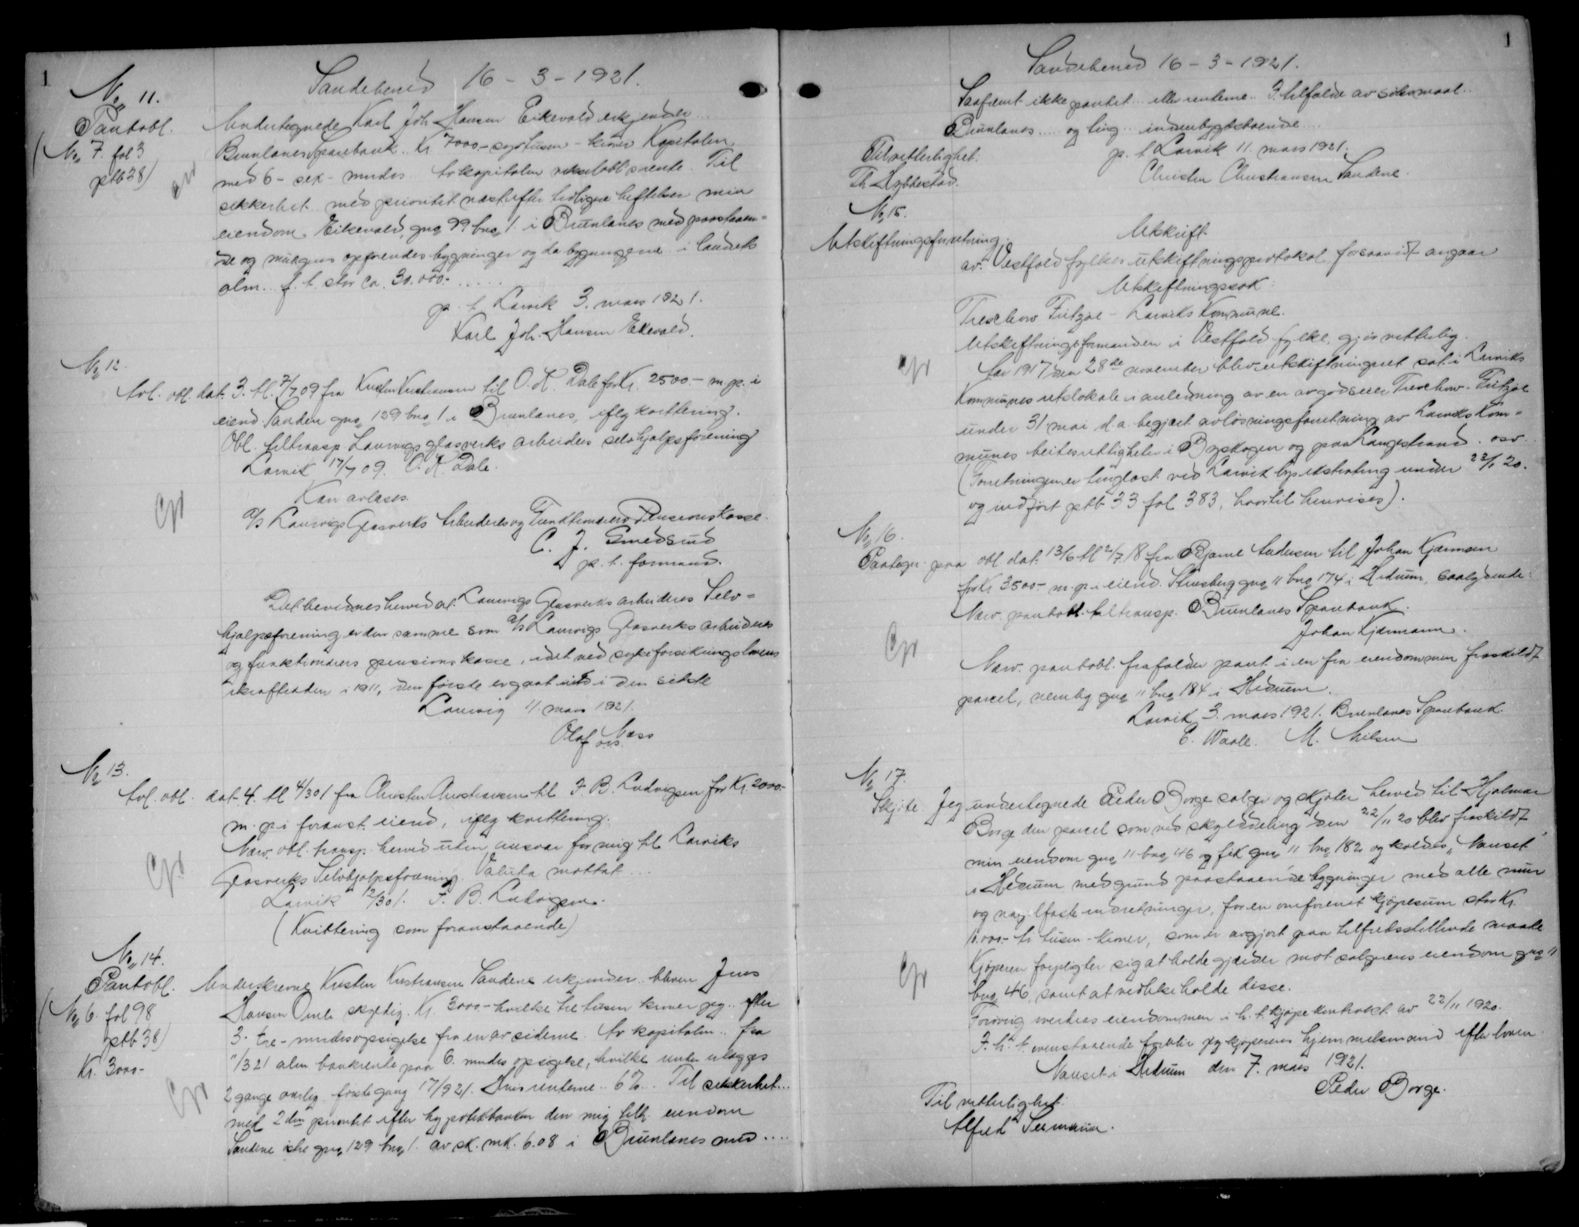 1
Sandeherred 16-3-1921.
No 11.
Pantobl.
(No 7. fol 3
ptb 38)
Undertegnede Karl Joh. Hansen Eikevold erkjender
Brunlanes Sparebank Kr 7000 - syv tusen - kroner Kapitalen
med 6 - sex - mndrs
sikkerhet med prioritet næst efter tidligere heftelser min
eiendom Eikevold, gno 99 bno 1 i Brunlanes med paastaaen-
de og mulig opførendes bygninger og da bygningene i landets
alm. f. t. stor ca. 30.000.-
p. t. Larvik 3. mars 1921.
Karl Joh. Hansen Eikevold.
No 12
Avl. obl. dat. 3. tl. 7/7 09 fra Kristen Kristiansen til O. K. Dale for Kr. 2500 - m. p. i
eiend Sanden gno 129 bno 1 i Brunlanes, iflg kvittering.
Obl. tiltransp Laurvigs glasverks arbeideres selvhjælpsforening
Larvik 17/7 09. O. K. Dale.
Kan avlæses
A/S Laurvigs Glasverks Arbeideres og Funktionærers Pensionskasse.
C. J. Smedsrud
p. t. formand.
Det bevidnes herved at Laurvigs Glasverks arbeideres Selv-
hjælpsforening er den samme som A/S Laurvigs Glasverks arbeideres
og funktionærers pensionskasse, idet ved sykeforsikringslovens
ikrafttræden i 1911, den første er gaat ind i den sidste
Laurvig 11 mars 1921.
Olaf Næss
No 13.
Avl. obl. dat. 4. tl 4/3 01 fra Christen Christiansen til F. B. Ludvigsen for Kr 2000-
m. p. i foranst. eiend, iflg kvittering.
Nærv. obl. transp. herved uten ansvar for mig til Larviks
Glasverks Selvhjælpsforening Valuta mottat ...
Larvik 12/3 01. F. B. Ludvigsen.
(Kvittering som foranstaaende)
No 14.
Pantobl.
(No 6. fol 98
ptb 38)
Kr. 3000-
Underskrevne Kristen Kristiansen Sandene erkjender bleven Jens
Hansen Omle skyldig Kr. 3000 - hvilke tre tusen kroner jeg efter
3 - tre - mndrs opsigelse fra en av siderne. Av kapitalen fra
11/3 21 alm bankrente paa 6. mndrs opsigelse, hvilke renter erlægges
2 gange aarlig første gang 17/9 21. 6%. Til sikkerhet...
med 2den prioritet efter hypotekbanken den mig tilh. eiendom
Sandene gno 129 bno 1. av sk. mk. 6.08 i Brunlanes med ....
1
Sandeherred 16-3-1921.
Saafremt ikke pantet eller renterne I tilfælde av søksmaal
Brunlanes og ting
p. t. Larvik 11. mars 1921.
Christen Christiansen Sandene.
Til vitterlighet.
No 15.
Utskiftningsforretning,
Utskrift
av Vestfold fylkes utskiftningsprotokol forsaavidt angaar
Utskiftningssak:
Treschow Fritzøe - Larviks Kommune.
Utskiftningsformanden i Vestfold fylke, gjør vitterlig
Aar 1917 den 28de november blev utskiftningsret sat i Larviks
Kommunes utelokale i anledning av en av godseier Treschow-Fritzøe
under 31 mai d. a. begjært avløsningsforretning av Larviks Kom-
munes beiterettigheter i Bøkskogen og paa Langestrand. osv.
(Forretningen er tinglæst ved Larvik byskriverting under 22/1 20.
og indført ptb 33 fol 383, hvortil henvises).
No 16.
Paategn. paa obl dat. 13/6 tl 2/7 18 fra Bjarne Andersen til Johan Kjærmann
for Kr 3500 - m p i eiend. gno 11 bno 174 i Hedrum, saalydende:
Nærv. pantobl. tiltransp. Brunlanes Sparebank.
Johan Kjærmann.
Nærv. pantobl. frafalder pant i en fra eiendommen fraskildt
parcel, nemlig gno 11 bno 184 i Hedrum.
Larvik, 3. mars 1921. Brunlanes Sparebank
E. Waale. M. Nilsen
No 17.
Skjøte. Jeg undertegnede Peder Borge sælger og skjøter herved til Hjalmar
Borge den parcel som ved skylddeling den 22/11 20 blev fraskildt
min eiendom gno 11 bno 46 og fik gno 11 bno 182 og kaldes "Nanset"
i Hedrum med grund paastaaende bygninger med alle mur
og naglfaste indretninger, for en omforenet kjøpesum stor Kr
10.000 - ti tusen - kroner, som er avgjort paa tilfredsstillende maate
Kjøperen forpligter sig at holde gjærder mot sælgerens eiendom gno 11
bno 46, samt at vedlikeholde disse.
Forøvrig overdras eiendommen i h. t. kjøpekontrakt av 22/11 1920.
I h. t. ovenstaaende forblir jeg kjøperens hjemmelsmand efter loven
Nanset i Hedrum den 7. mars 1921.
Peder Borge.
Til vitterlighet:
Alfred Seemann.